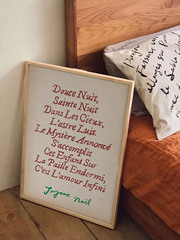 Douce Nuit,
Sainte Nuit
Dans Les Cieux,
L'astre Luit.
Le Mystère Annoncé
S'accomplit
Cet Enfant Sur
La Paille Endormi,
C'est L'amour Infini
Joyeux Noël